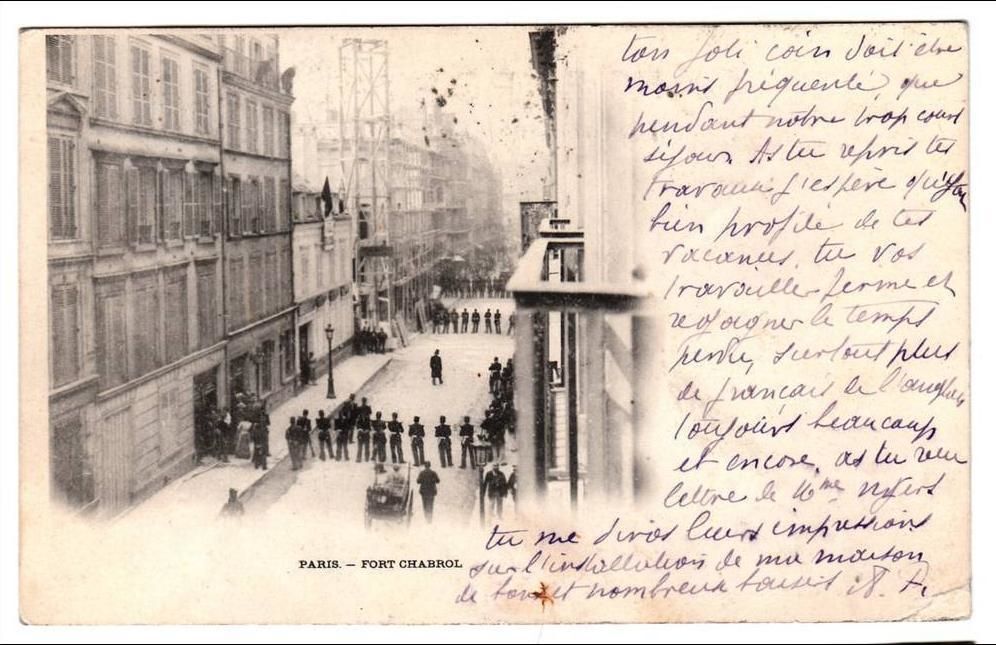 ton joli coin doit être
moins fréquenté que
pendant notre trop court
séjour. As tu repris tes
travaux j'espère qu'
bien profité de tes
vacances, tu vas
travailler ferme et
regagner le temps
perdu, surtout plus
de français de l'anglais
toujours beaucoup
et encore, as tu reçu
lettre de
tu me diras leurs impressions
sur l'installation de ma maison
de tout et nombreux baisers
PARIS. — FORT CHABROL